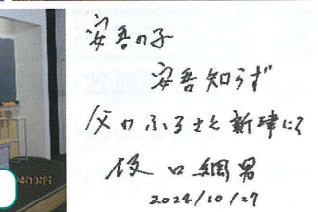 安吾の子
安吾知らず
父のふるさと新津にて
坂口綱男
2024/10/27
4/10/27